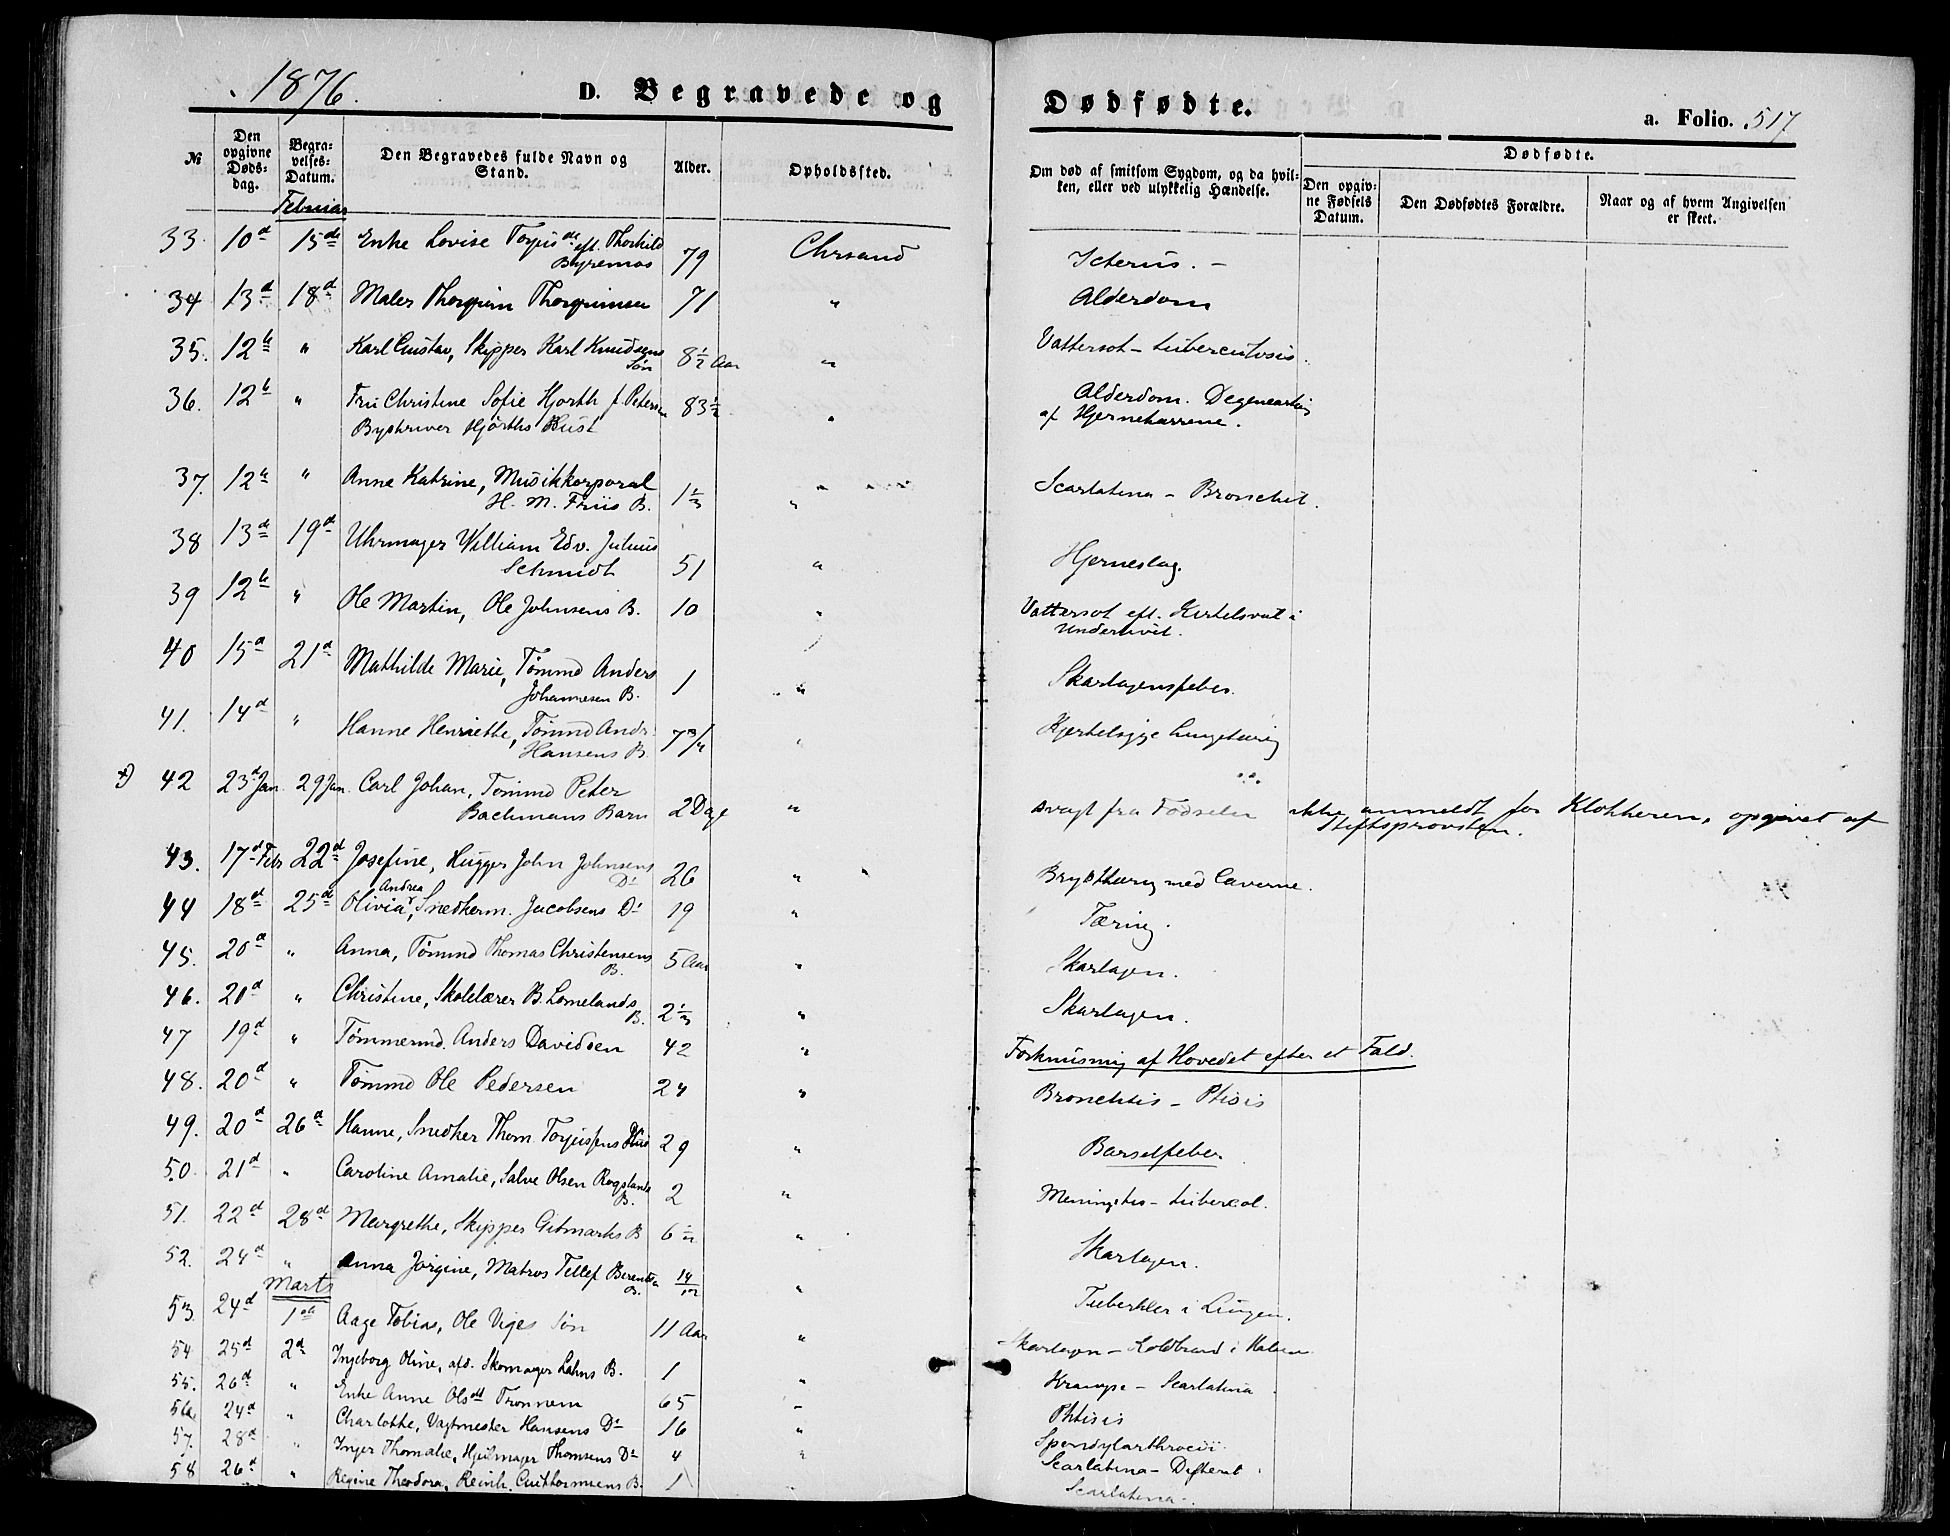 1876.
D. Begravede og
Dødfødte.
a. Folio. 517
№
Den opgivne Døds-dag.
Begra-velses-Datum.
Den Begravedes fulde Navn og Stand.
Alder.
Opholdssted.
Om død af smitsom Sygdom, og da hvil-ken, eller ved ulykkelig Hændelse.
Dødfødte.
Den opgiv-ne Fødsels Datum.
Den Dødfødtes Forældre.
Naar og af hvem Angivelsen er skeet.
Februar
33. 10d 15de Enke Lovise Torjusdt. eft. Thorkild Byremos 79 Chrsand Icterus. -
34 13d 18d Maler Thorgrim Thorgrimsen 71 " Alderdom
35. 12te " Karl Gustav, Skipper Karl Knudsens Søn 8½ Aar " Vattersot - tuberculosis.
36. 12te " Fru Christine Sofie Hjorth f. Petersen 83½ " Alderdom. Degenearting
Byskriver Hjorths Hust af Hjernekarrene.
37. 12te " Anna Katrine, Musikkorporal H. M. Friis B. 1⅓ " Scarlatina - Bronchit.
38 13de 19d Uhrmager William Edv. Julius Schmidt 51 " Hjerneslag.
39 12te " Ole Martin, Ole Johnsens B. 10 " Vattersot eft. Kirtelsvul i Underlivet.
40 15d 21d Mathilde Marie, Tømmd Anders Johannesen B. 1 " Skarlagensfeber.
41. 14d " Hanne Henriette, Tømmd Andr. Hansens B. 7¾ " Kjertelsyge Lungetæring
x) 42 23d Jan 29 Jan. Carl Johan, Tømmd Peter Bachmans Barn 2 Dage " svagt fra Fødselen ikke anmeldt for Klokkeren, opgivet af Stiftsprovsten.
43. 17d Febr 22d Josefine, Hugger John Johnsens Dr 26 " Brysttæring med Caverne.
44 18d 25de Olivia Andrea, Snedkerm. Jacobsens Dr 19 " Tæring.
45. 20d " Anna, Tømmd Thomas Christensens B. 5 Aar " Skarlagen.
46. 20d " Christine, Skolelærer B. Lomelands B. 2⅓ " Skarlagen.
47 19d " Tømmermd. Anders Davidsen 42 " Forknusning af Hovedet efter et Fald.
48. 20d " Tømmd Ole Pedersen 24 " Bronchitis - Ptisis
49. 20d 26d Hanne, Snedker Thom. Torjussens Hus 29 " Barselfeber
50. 21d " Caroline Amalie, Salve Olsen Rogslands B. 2 " Meningitis - tubercol.
51. 22d 28d Margrethe, Skipper Gitmarks B 6½ " Skarlagen.
52. 24d " Anna Jørgine, Matros Tellef Berents B. 14/12 " Tuberkler i Lungen.
Marts
53. 24d 1ste Aage Tobias, Ole Viges Søn 11 Aar " Skarlagen - Koldbrand i Halsen
54 25d 2d Ingeborg Oline, afd. Skomager Lahns B. 1 " Krampe - Scarlatina
55. 26d " Enke Anne Olsdt Tronnem 65 " Phtisis
56. 24d " Charlotte, Vagtmester Hansens Dr 16 " Spondylarthrocdi
57. 28d " Inger Thomalie, Hjulmager Thomsens Dr 4 " Scarlatina - Difterit.
58 26d " Regine Theodora, Reinh. Gutthormsens B. 1 Scarlatina.